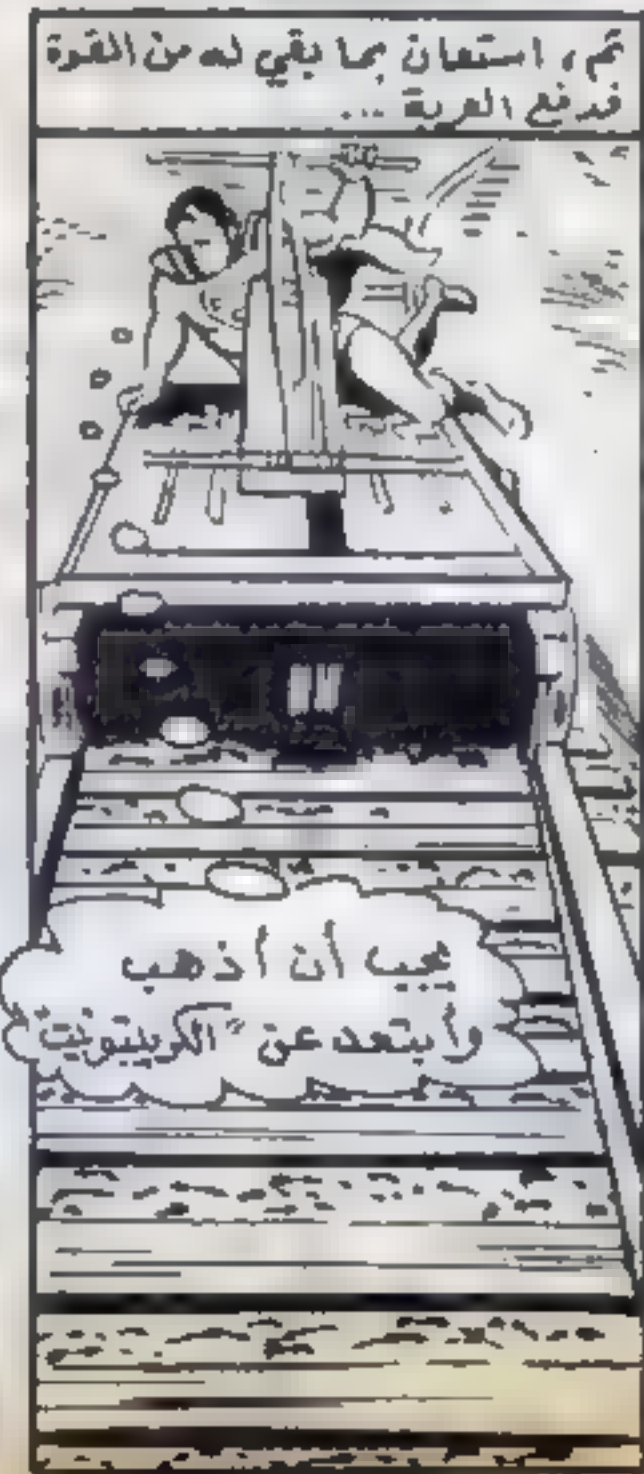 ثم، استعان بما بقي له من القوة
فدفع العربة ...
يجب أن أذهب
وأبتعد عن "الكريبتونيت"